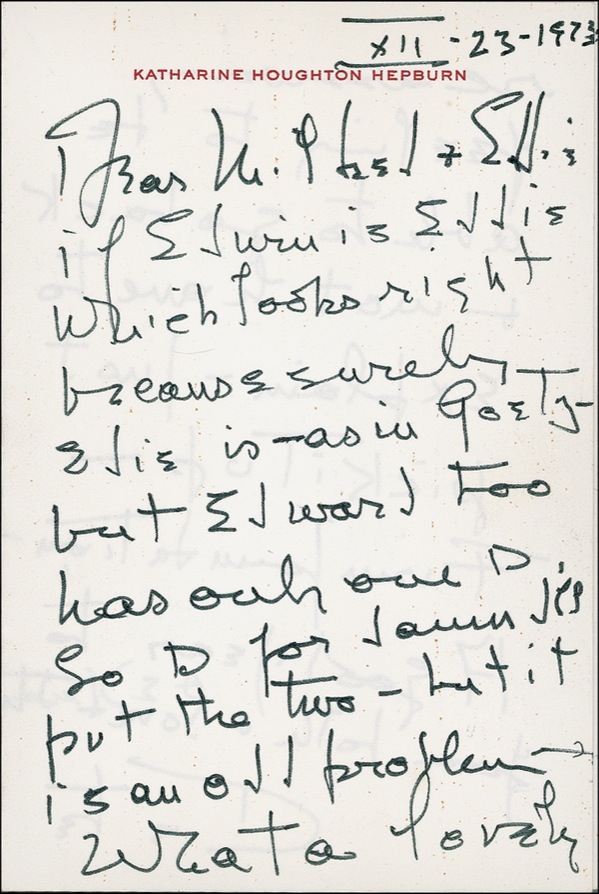 XII - 23 - 1973
KATHARINE HOUGHTON HEPBURN
Dear Mildred + Eddie
if Edwin is Eddie
which looks right
because surely
Edie is - as in Goetz -
but Edward too
has only one D.
So D for
put the two - but it
is an odd problem -
What a lovely